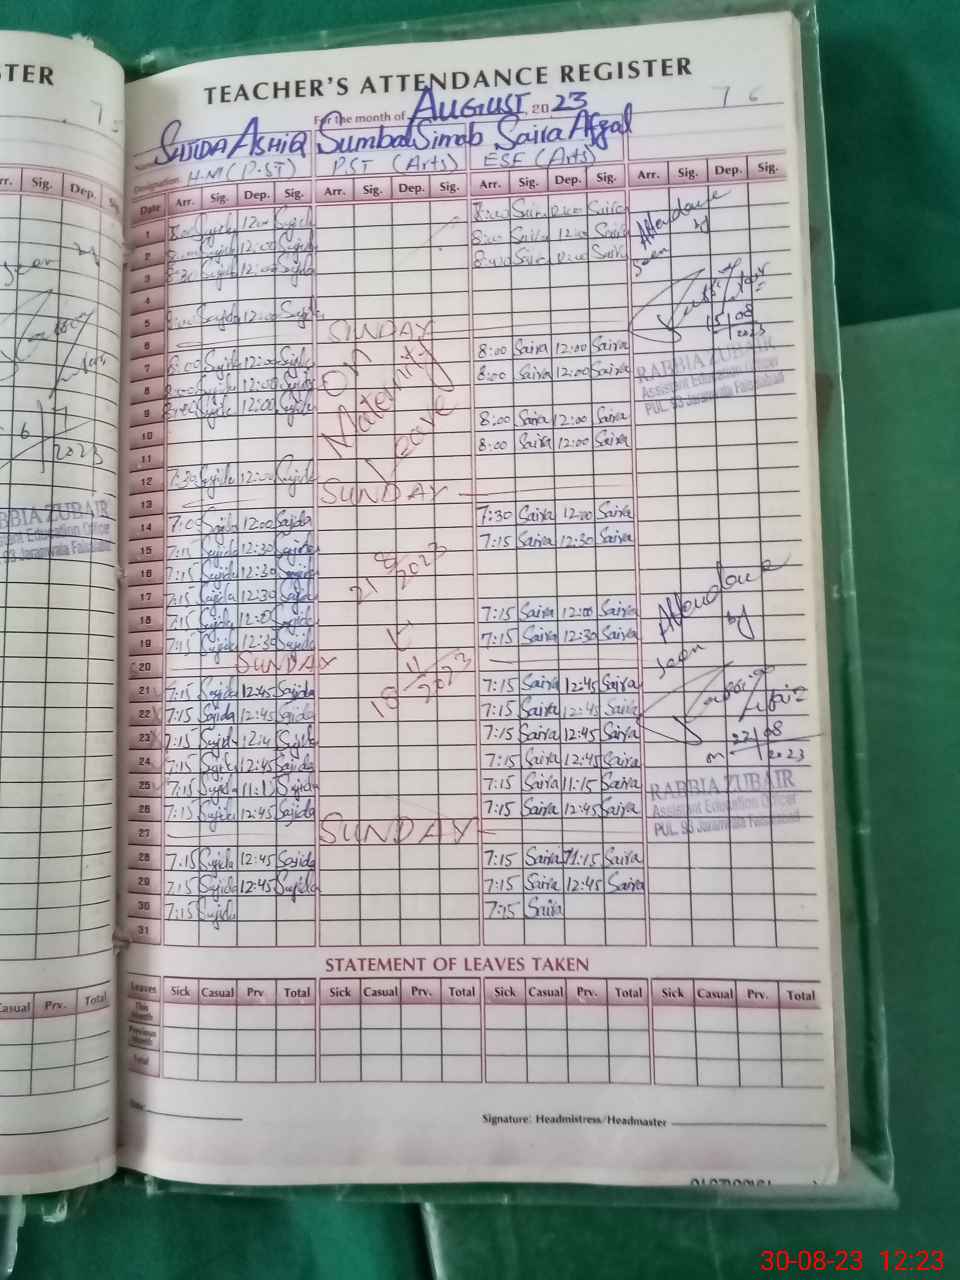 STER
TEACHER'S ATTENDANCE REGISTER
For the month of AUGUST, 2023
76
SAJIDA ASHIQ Sumbal Simab Saira Afzal
Designation H.M (P.ST) P.ST (Arts) ESE (Arts)
Date Arr. Sig. Dep. Sig. Arr. Sig. Dep. Sig. Arr. Sig. Dep. Sig. Arr. Sig. Dep. Sig.
1 8:00 12:00 Saira
2 12:00 8:00 Saira Saira
3 8:30 Sajida 12:00 Sajida Saira
Attendance
Seen by
4
5 Sajida 12:00 Sajida
15/08
2023
6 SUNDAY
7 8:00 Sajida 12:00 Sajida 8:00 Saira 12:00 Saira
8 12:00 Sajida 8:00 Saira 12:00 Saira
9 8:00 Sajida 12:00 Sajida
On
Maternity
Leave
RABBIA ZUBAIR
Assistant Education Officer
PUL. 93 Jaranwala Faisalabad
10 8:00 Saira 12:00 Saira
11 8:00 Saira 12:00 Saira
12 7:30 Sajida 12:00 Sajida
13 SUNDAY
14 7:00 Sajida 12:00 Sajida 7:30 Saira 12:00 Saira
15 7:15 Sajida 12:30 Sajida 7:15 Saira 12:30 Saira
16 7:15 Sajida 12:30 Sajida
17 7:15 Sajida 12:30 Sajida
21 8/2023
18 7:15 Sajida Sajida 7:15 Saira 12:00 Saira
19 7:15 Sajida 12:30 Sajida 7:15 Saira 12:30 Saira
Attendance
Seen by
20 SUNDAY
18 11/2023
21 7:15 Sajida 12:45 Sajida 7:15 Saira 12:45 Saira
22 7:15 Sajida 12:45 Sajida 7:15 Saira 12:45 Saira
23 7:15 Sajida Sajida 7:15 Saira 12:45 Saira
on 22/08
2023
24 7:15 Sajida 12:45 Sajida 7:15 Saira 12:45 Saira
25 7:15 Sajida 11:15 Sajida 7:15 Saira 11:15 Saira
26 7:15 Sajida 12:45 Sajida 7:15 Saira 12:45 Saira
RABBIA ZUBAIR
Assistant Education Officer
PUL. 93 Jaranwala Faisalabad
27 SUNDAY
28 7:15 Sajida 12:45 Sajida 7:15 Saira 11:15 Saira
29 7:15 Sajida 12:45 Sajida 7:15 Saira 12:45 Saira
30 7:15 Sajida 7:15 Saira
31
STATEMENT OF LEAVES TAKEN
Leaves Sick Casual Prv Total Sick Casual Prv. Total Sick Casual Prv. Total Sick Casual Prv. Total
This Month
Previous Month
Total
Date:
Signature: Headmistress/Headmaster
rr. Sig. Dep. Sig.
6 7
2023
BBIA ZUBAIR
Assistant Education Officer
93 Jaranwala Faisalabad
Casual Prv. Total
30-08-23 12:23